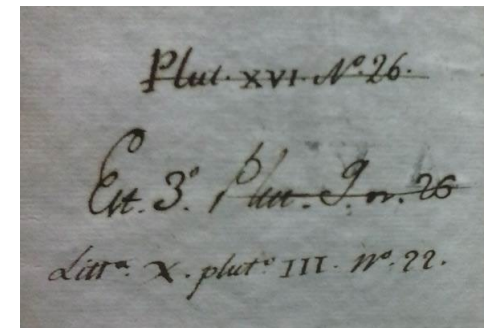 Plut. XVI. Nº. 26.
Est. 3º. Plut. 9. nr. 26
Littª. X. plutº III. Nº. 22.